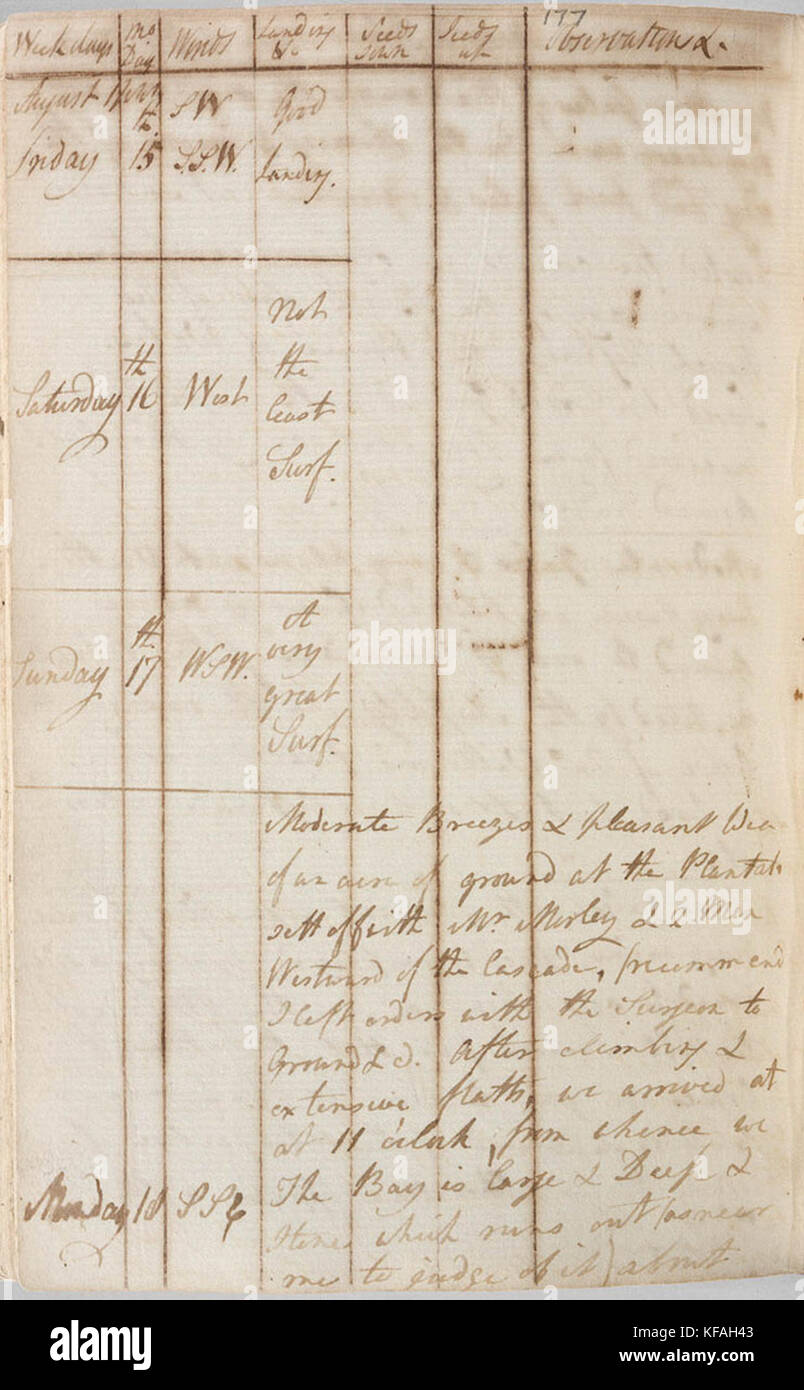 177
Week days | Mo Day | Winds | Landing &c. | Seeds sown | Seeds up | Observations &.
August
Friday | th 15 | SW S.S.W. | Good Landing.
Saturday | th 16 | West | Not the least Surf.
Sunday | th 17 | WSW. | A very great Surf.
Moderate Breezes & pleasant Wea
of an acre of ground at the Plantat
sett off with Mr. Morley & 2 Men
Westward of the Cascade, (recommend
I left orders with the Surgeon to
Ground &c. After climbing &
extensive flatts, we arrived at
at 11 o'clock, from whence we
The Bay is large & Deep &
which runs out (as near
me to judge of it) about
Monday | 18 | SSE
alamy
Image ID: KFAH43
www.alamy.com